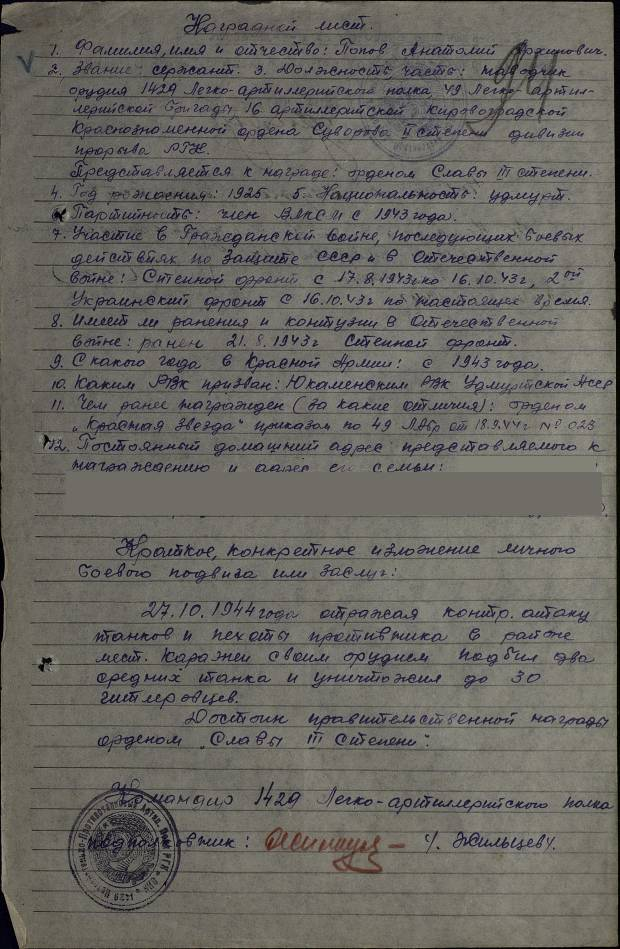 Наградной лист.
1. Фамилия, имя и отчество: Попов Анатолий Архипович.
2. Звание сержант. 3. Должность часть: наводчик
орудия 1429 Легко-артиллерийского полка 49 Легко-артил-
лерийской бригады, 16 артиллерийской Кировоградской
Краснознаменной ордена Суворова II степени дивизии
прорыва РГК.
Представляется к награде: орденом Славы III степени.
4. Год рождения: 1925 5. Национальность: удмурт.
6. Партийность: член ВЛКСМ с 1943 года.
7. Участие в Гражданской войне, последующих боевых
действиях по защите СССР и в Отечественной
войне: Степной фронт с 17.8.1943г по 16.10.43г, 2ой
Украинский фронт с 16.10.43г по настоящее время.
8. Имеет ли ранения и контузии в Отечественной
войне: ранен 21.8.1943г Степной фронт.
9. С какого года в Красной Армии: с 1943 года.
10. Каким РВК призван: Юкаменским РВК Удмуртской АССР
11. Чем ранее награжден (за какие отличия): орденом
„Красная Звезда" приказом по 49 ЛАбр от 18.9.44г № 023
12. Постоянный домашний адрес представляемого к
награждению и адрес его семьи:
Краткое, конкретное изложение личного
боевого подвига или заслуг:
27.10.1944 года отражая контр.атаку
танков и пехоты противника в районе
мест. Каражеи своим орудием подбил два
средних танка и уничтожил до 30
гитлеровцев.
Достоин правительственной награды
орденом „Славы III Степени".
Командир 1429 Легко-артиллерийского полка
подполковник: /. Жильцев /.